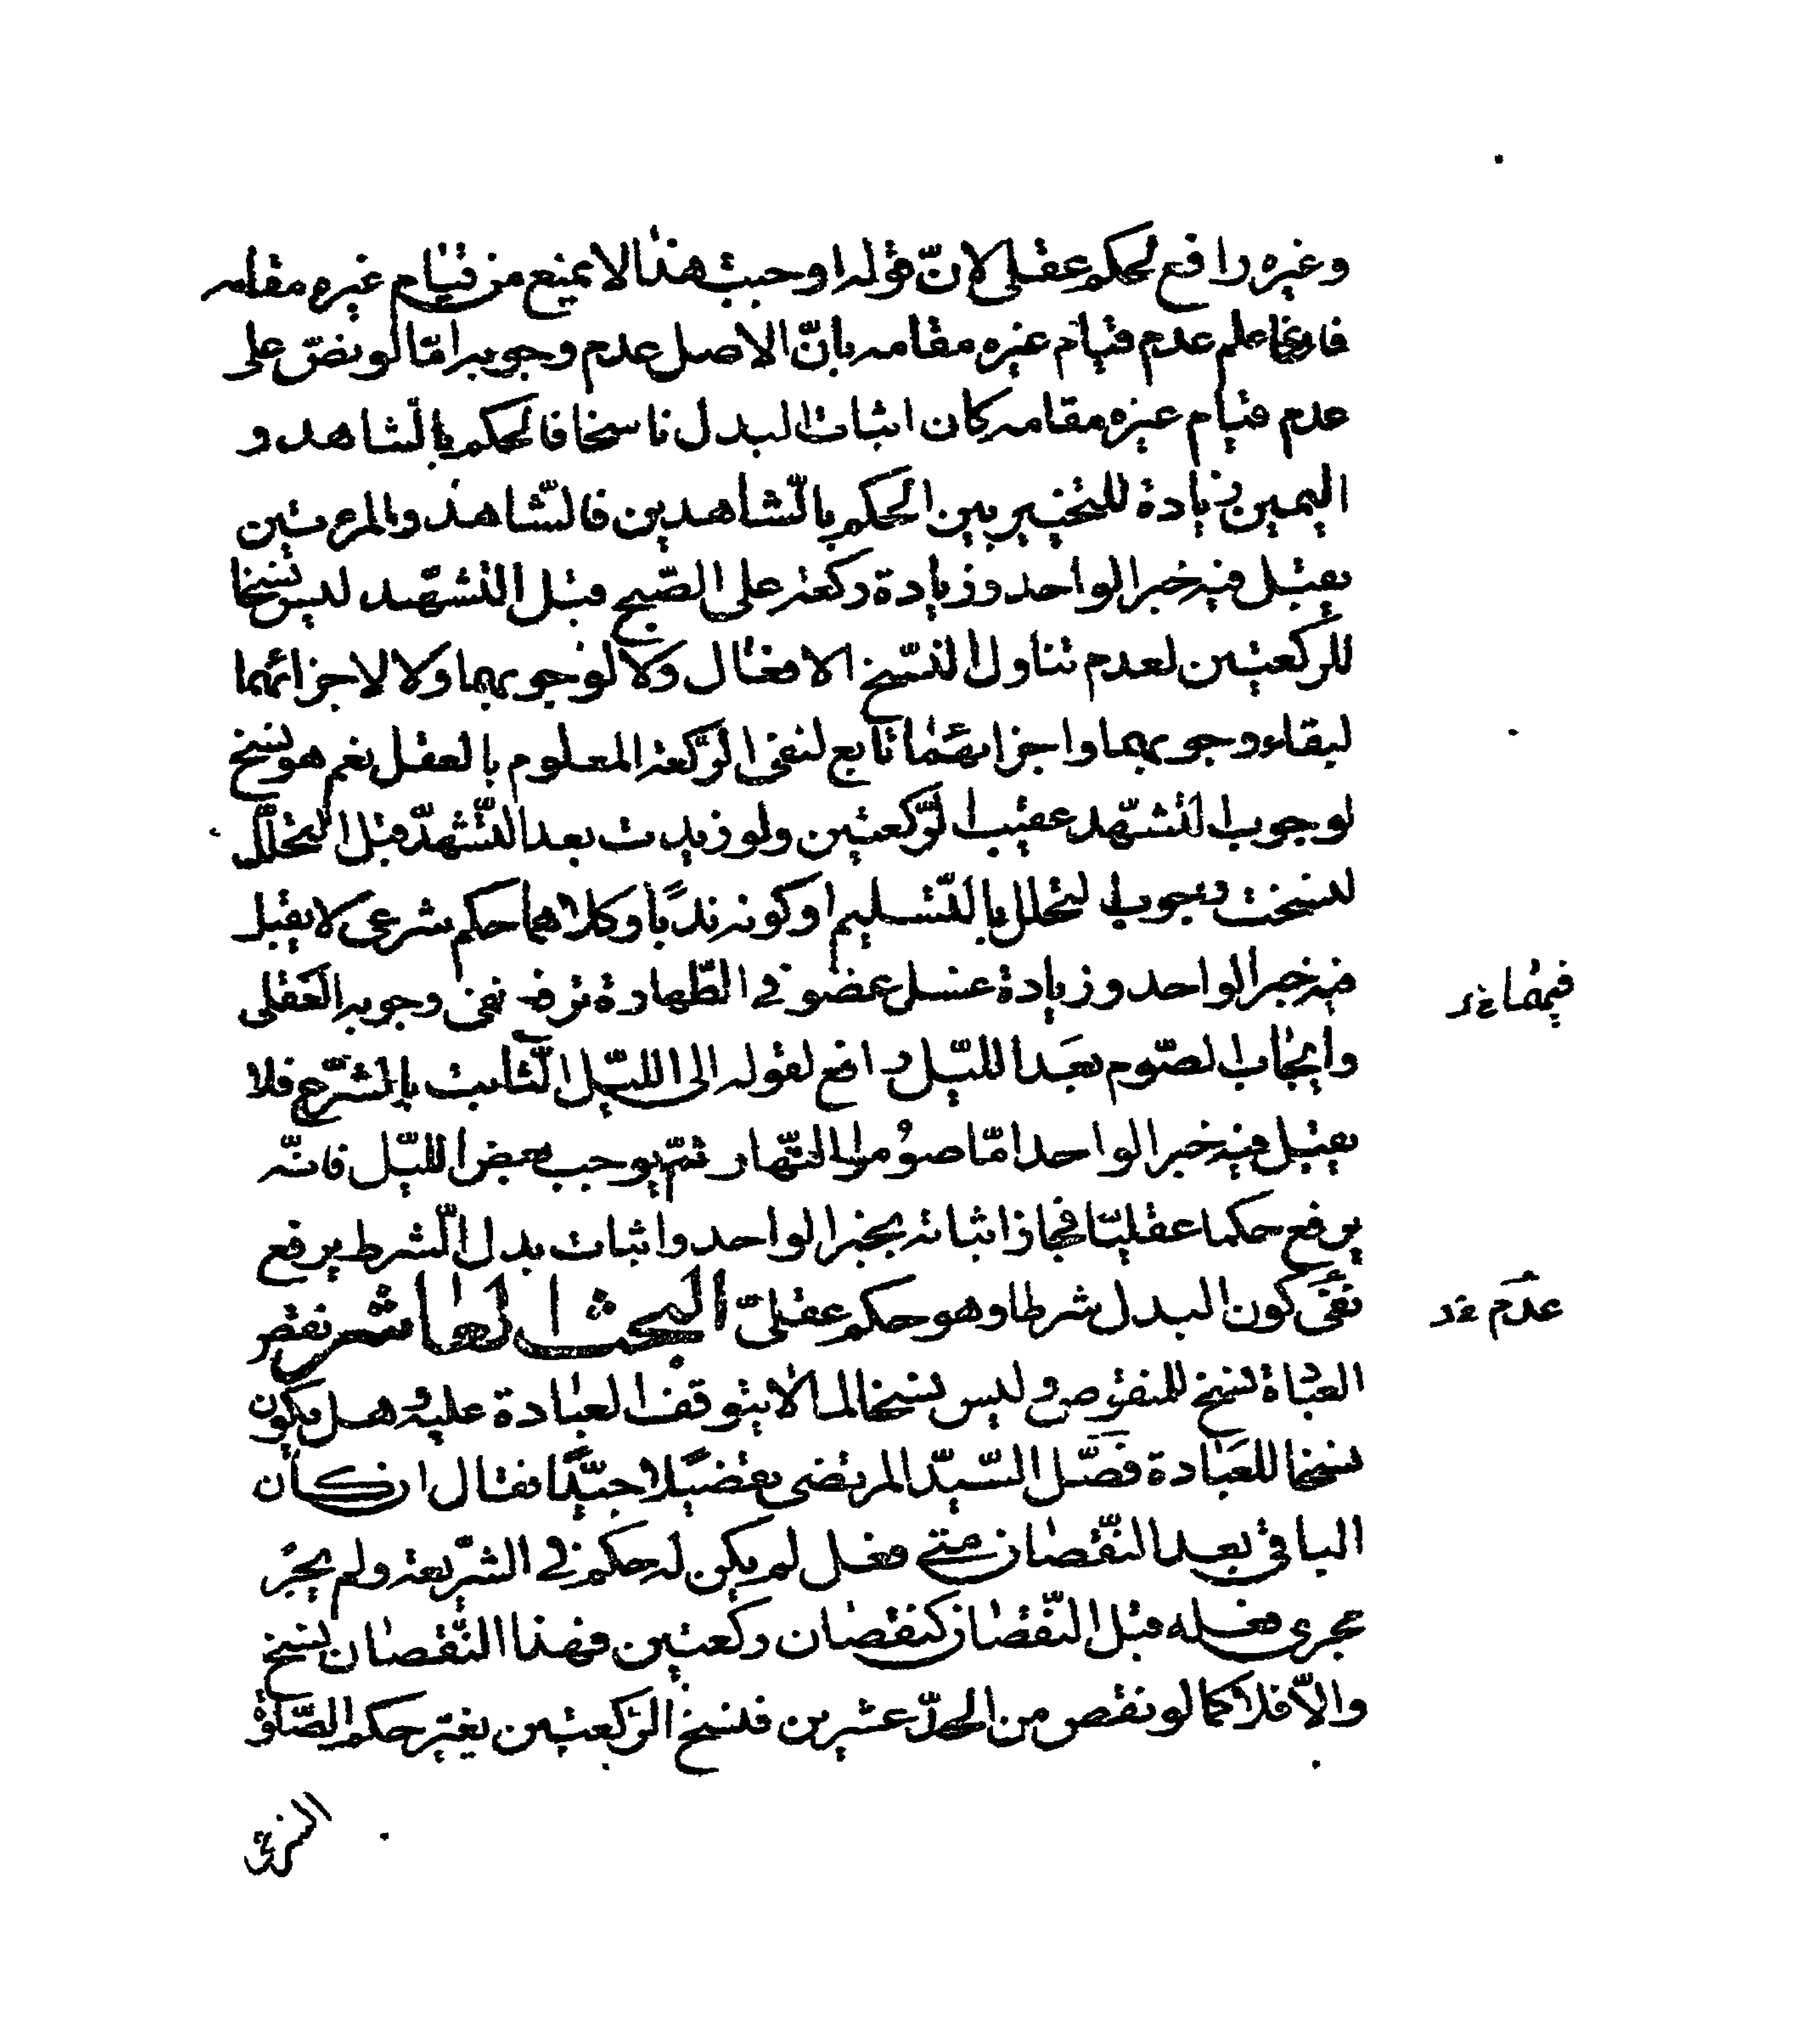 وغيره رافع لحكم عقلي لانّ قوله اوجبت هذا لا يمنع من قيام غيره مقامه
فانما علم عدم قيام غيره مقامه بانّ الاصل عدم وجوبه امّا لو نصّ على
عدم قيام غيره مقامه كان اثبات البدل ناسخا فالحكم بالشاهد و
اليمين زيادة للتخيير بين الحكم بالشاهدين فالشاهد والمرءتين
يقبل فيه خبر الواحد وزيادة ركعة على الصّبح قبل التشهّد ليس نسخا
للركعتين لعدم تناول النسّخ الافعال ولا لوجوبهما ولا لاجزائهما
لبقاء وجوبهما واجزائهما تابع لنفى الرّكعة المعلوم بالعقل نعم هو نسخ
لوجوب التشهّد عقيب الرّكعتين ولو زيدت بعد التّشهّد قبل التحلّل
لنسخت وجوب التحلل بالتّسليم او كونه ندبًا وكلاهما حكم شرعى لا يقبل
فيه خبر الواحد وزيادة غسل عضو في الطّهارة ترفع نفى وجوبه العقلى
فيهما
وايجاب الصّوم بعد الليّل رافع لقوله الى الليّل الثّابت بالشّرع فلا
يقبل فيه خبر الواحد امّا صوموا النّهار ثمّ يوجب بعض الليّل فانّه
يرفع حكما عقليّا فجاز اثباته بخبر الواحد واثبات بدل الشّرط يرفع
نفى كون البدل شرطا وهو حكم عقلىّ البحث العاشر نقص
عدم
العبادة نسخ للمنقوص وليس نسخا لما لا يتوقف العبادة عليه وهل يكون
نسخا للعبادة فصّل السّيّد المرتضى تفصيلا جيّدًا فقال ان كان
الباقى بعد النّقصان متى فعل لم يكن له حكم في الشّريعة ولم يجر
مجرى فعله قبل النّقصان كنقصان ركعتين فهذا النّقصان نسخ
والاّ فلا كما لو نقص من الحدّ عشرين فنسخ الرّكعتين يغيّر حكم الصّلوة